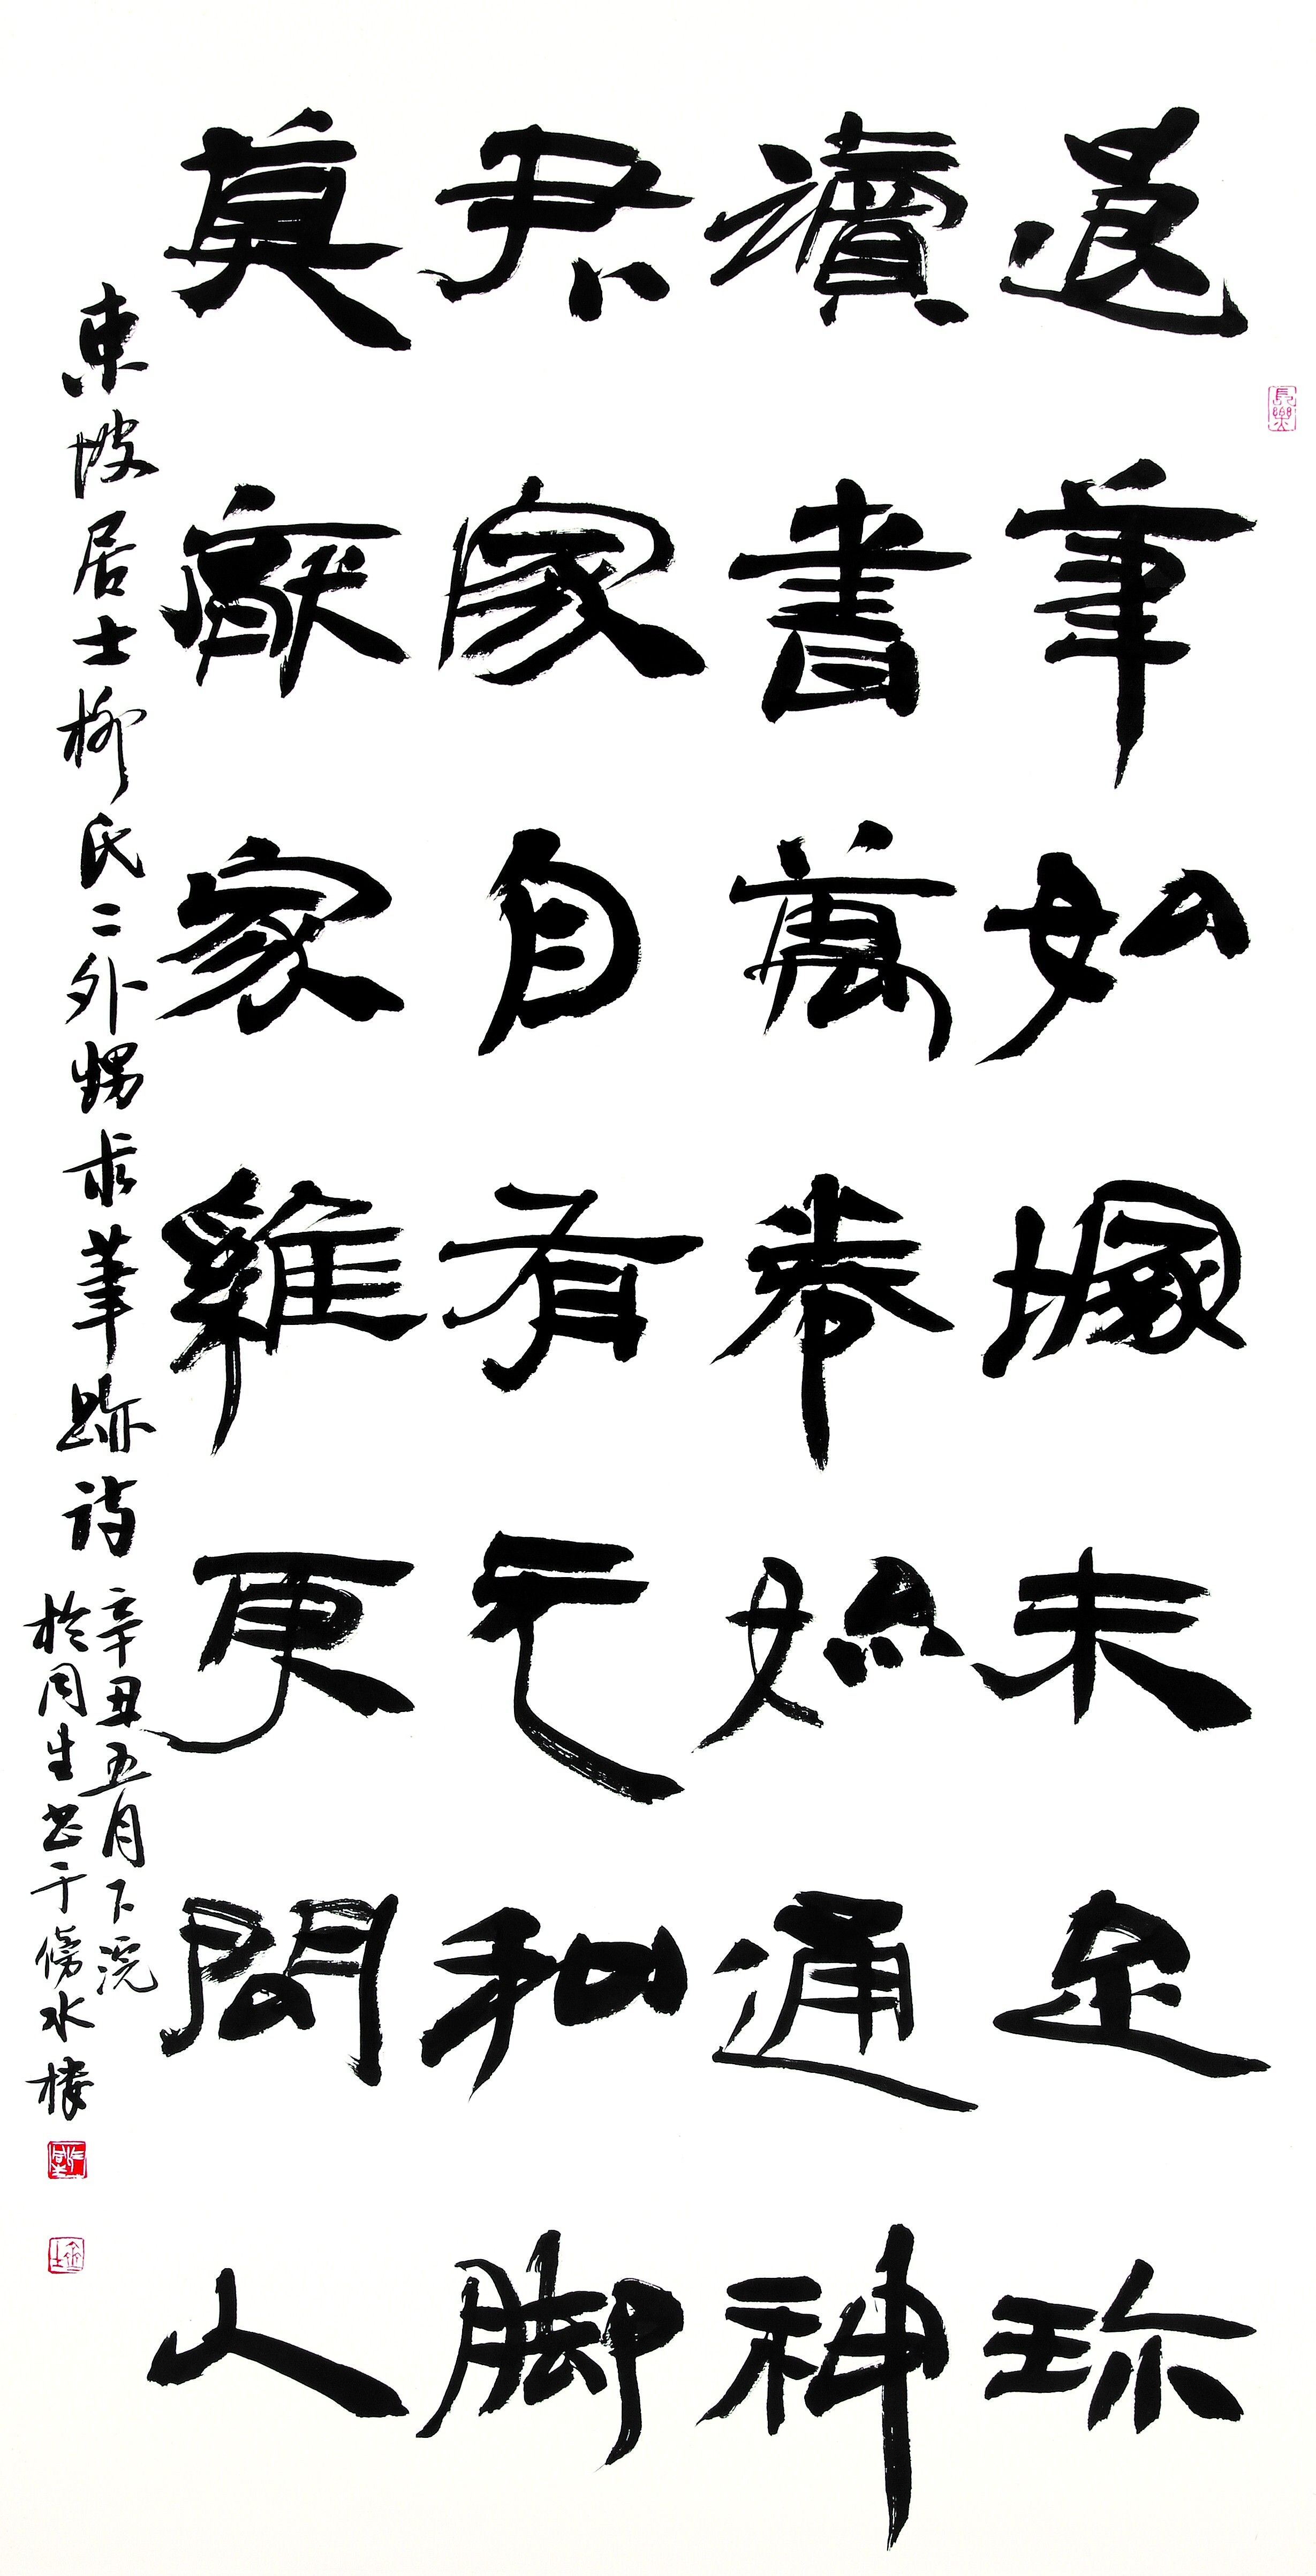 退筆如塚未足珍
讀書萬卷始通神
君家自有元和脚
莫厭家雞更問人
東坡居士柳氏二外甥求筆跡詩
辛丑五月下浣
於同生书于傍水樓
長樂